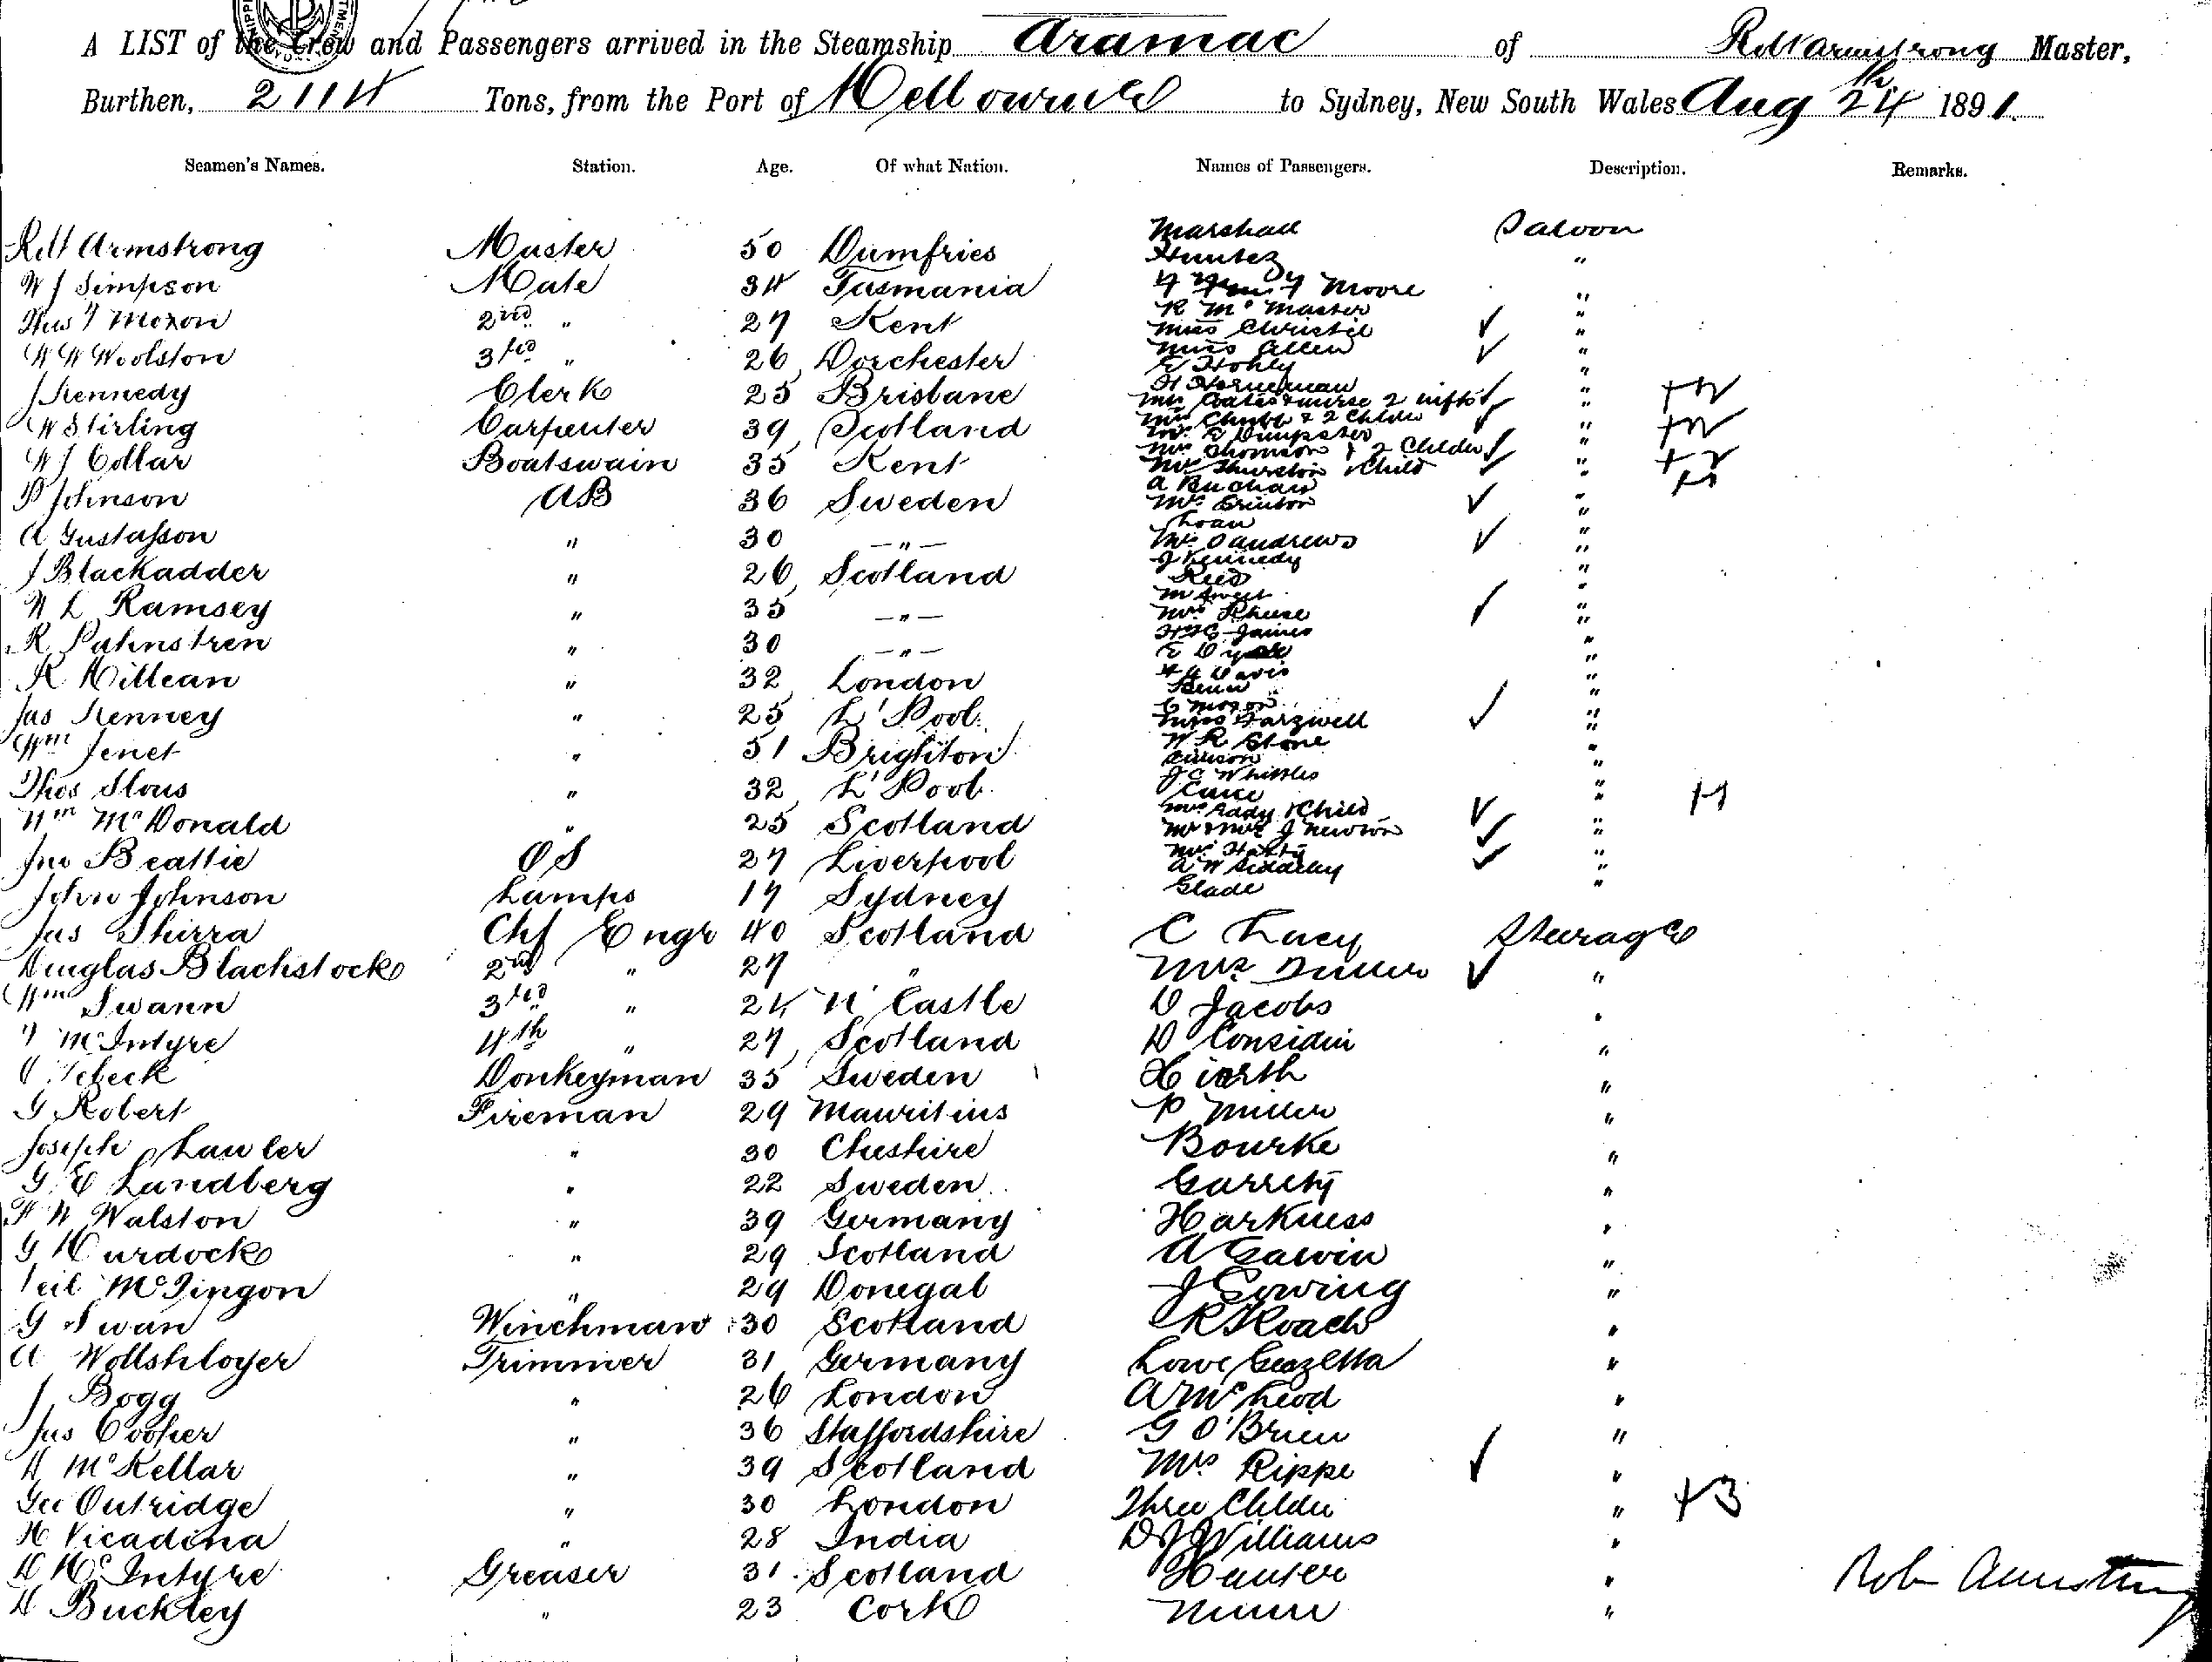 A LIST of the Crew and Passengers arrived in the Steamship Aramac of Robt Armstrong Master,
Burthen, 2114 Tons, from the Port of Melbourne to Sydney, New South Wales Aug 24th 1891.
Seamen's Names. Station. Age. Of what Nation. Names of Passengers. Description. Remarks.
Robt Armstrong Master 50 Dumfries
W J Simpson Mate 34 Tasmania
Thos F Moxon 2nd " 27 Kent
W W Woolston 3rd " 26 Dorchester
J Kennedy Clerk 25 Brisbane
W Stirling Carpenter 39 Scotland
W J Collar Boatswain 35 Kent
P Johnson AB 36 Sweden
A Gustafson " 30 — " —
J Blackadder " 26 Scotland
W L Ramsey " 35 — " —
R Palmstren " 30 — " —
K Killean " 32 London
Jas Kenney " 25 L'Pool.
Wm Jenet " 51 Brighton
Thos Slous " 32 L'Pool.
Wm McDonald " 25 Scotland
Jno Beattie OS 27 Liverpool
John Johnson Lamps 17 Sydney
Jas Shirra Chf Engr 40 Scotland
Douglas Blackstock 2nd " 27 "
Wm Swann 3rd " 24 N'Castle
McIntyre 4th " 27 Scotland
Donkeyman 35 Sweden
G Robert Fireman 29 Mauritius
Joseph Lawler " 30 Cheshire
G E Landberg " 22 Sweden
W Walston " 39 Germany
G Murdock " 29 Scotland
Neil McGingon " 29 Donegal
G Swan Winchman 30 Scotland
A Wollshloyer Trimmer 31 Germany
J Bogg " 26 London
Jas Cooper " 36 Staffordshire
D McKellar " 39 Scotland
Geo Outridge " 30 London
H Vicadina " 28 India
D McIntyre Greaser 31 Scotland
D Buckley " 23 Cork
Marshall Saloon
Hunter "
Moore "
R McMaster "
Miss Christie "
Miss Allen "
E Hohly "
H Horneman "
Mrs Coates & nurse 2 infts " +2
Mrs Chubb & 2 Childn " +2
Mr E Dempster "
Mrs Thomson & 2 Childn " +2
Mrs Thurston & Child " +1
A Buchan "
Mrs Brinton "
Loan "
Mrs D Andrews "
J Kennedy "
Reed "
M Sweet "
Mrs "
James "
E "
Davis "
"
C Moxon "
Miss Farzwell "
W R Stone "
"
J C Whittles "
"
Mrs Eady & Child " +1
Mr & Mrs J Newton "
Mrs "
A W Siddeley "
Glade "
C Lacey Steerage
Mrs "
D Jacobs "
D Considin "
Hierth "
P Miller "
Bourke "
Garrety "
Harkness "
A Gawin "
J Gowing "
R Roach "
Lowe "
A McLeod "
G O'Brien "
Mrs Rippe "
Three Childn " +3
D J Williams "
Hunter "
"
Robt Armstrong